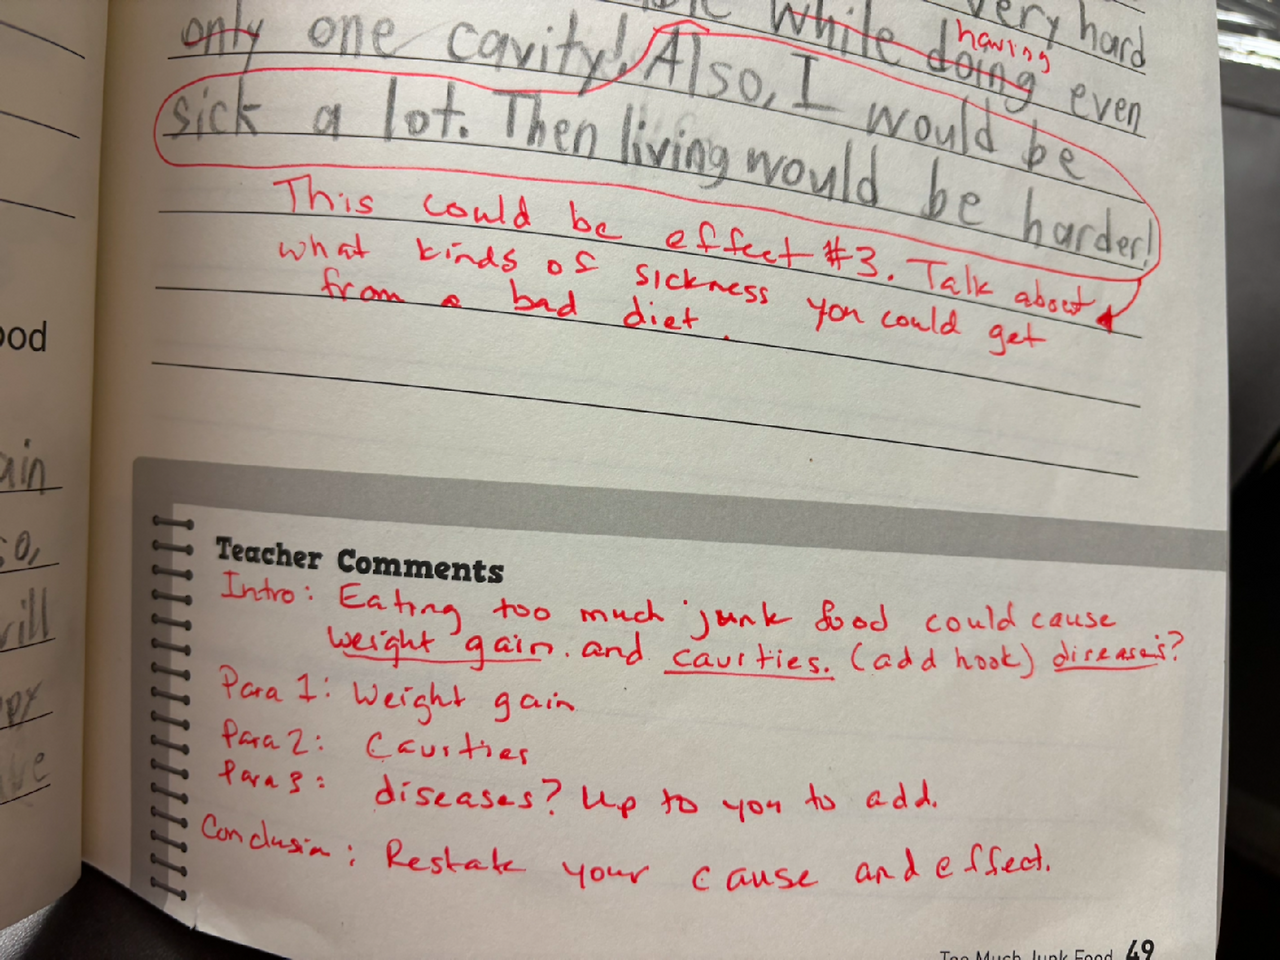 very hard
while doing having even
only one cavity! Also, I would be
sick a lot. Then living would be harder!
This could be effect #3. Talk about
what kinds of sickness you could get
from a bad diet.
ood
ain
so,
will
Teacher Comments
Intro: Eating too much junk food could cause
weight gain. and cavities. (add hook) diseases?
Para 1: Weight gain
Para 2: Cavities
Para 3: diseases? Up to you to add.
Conclusion: Restate your cause and effect.
Too Much Junk Food 49